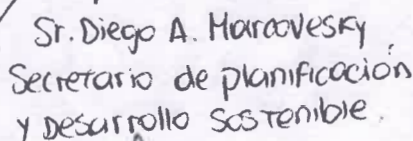 Sr. Diego A. Marcovesky
Secretario de planificación
y Desarrollo Sostenible.